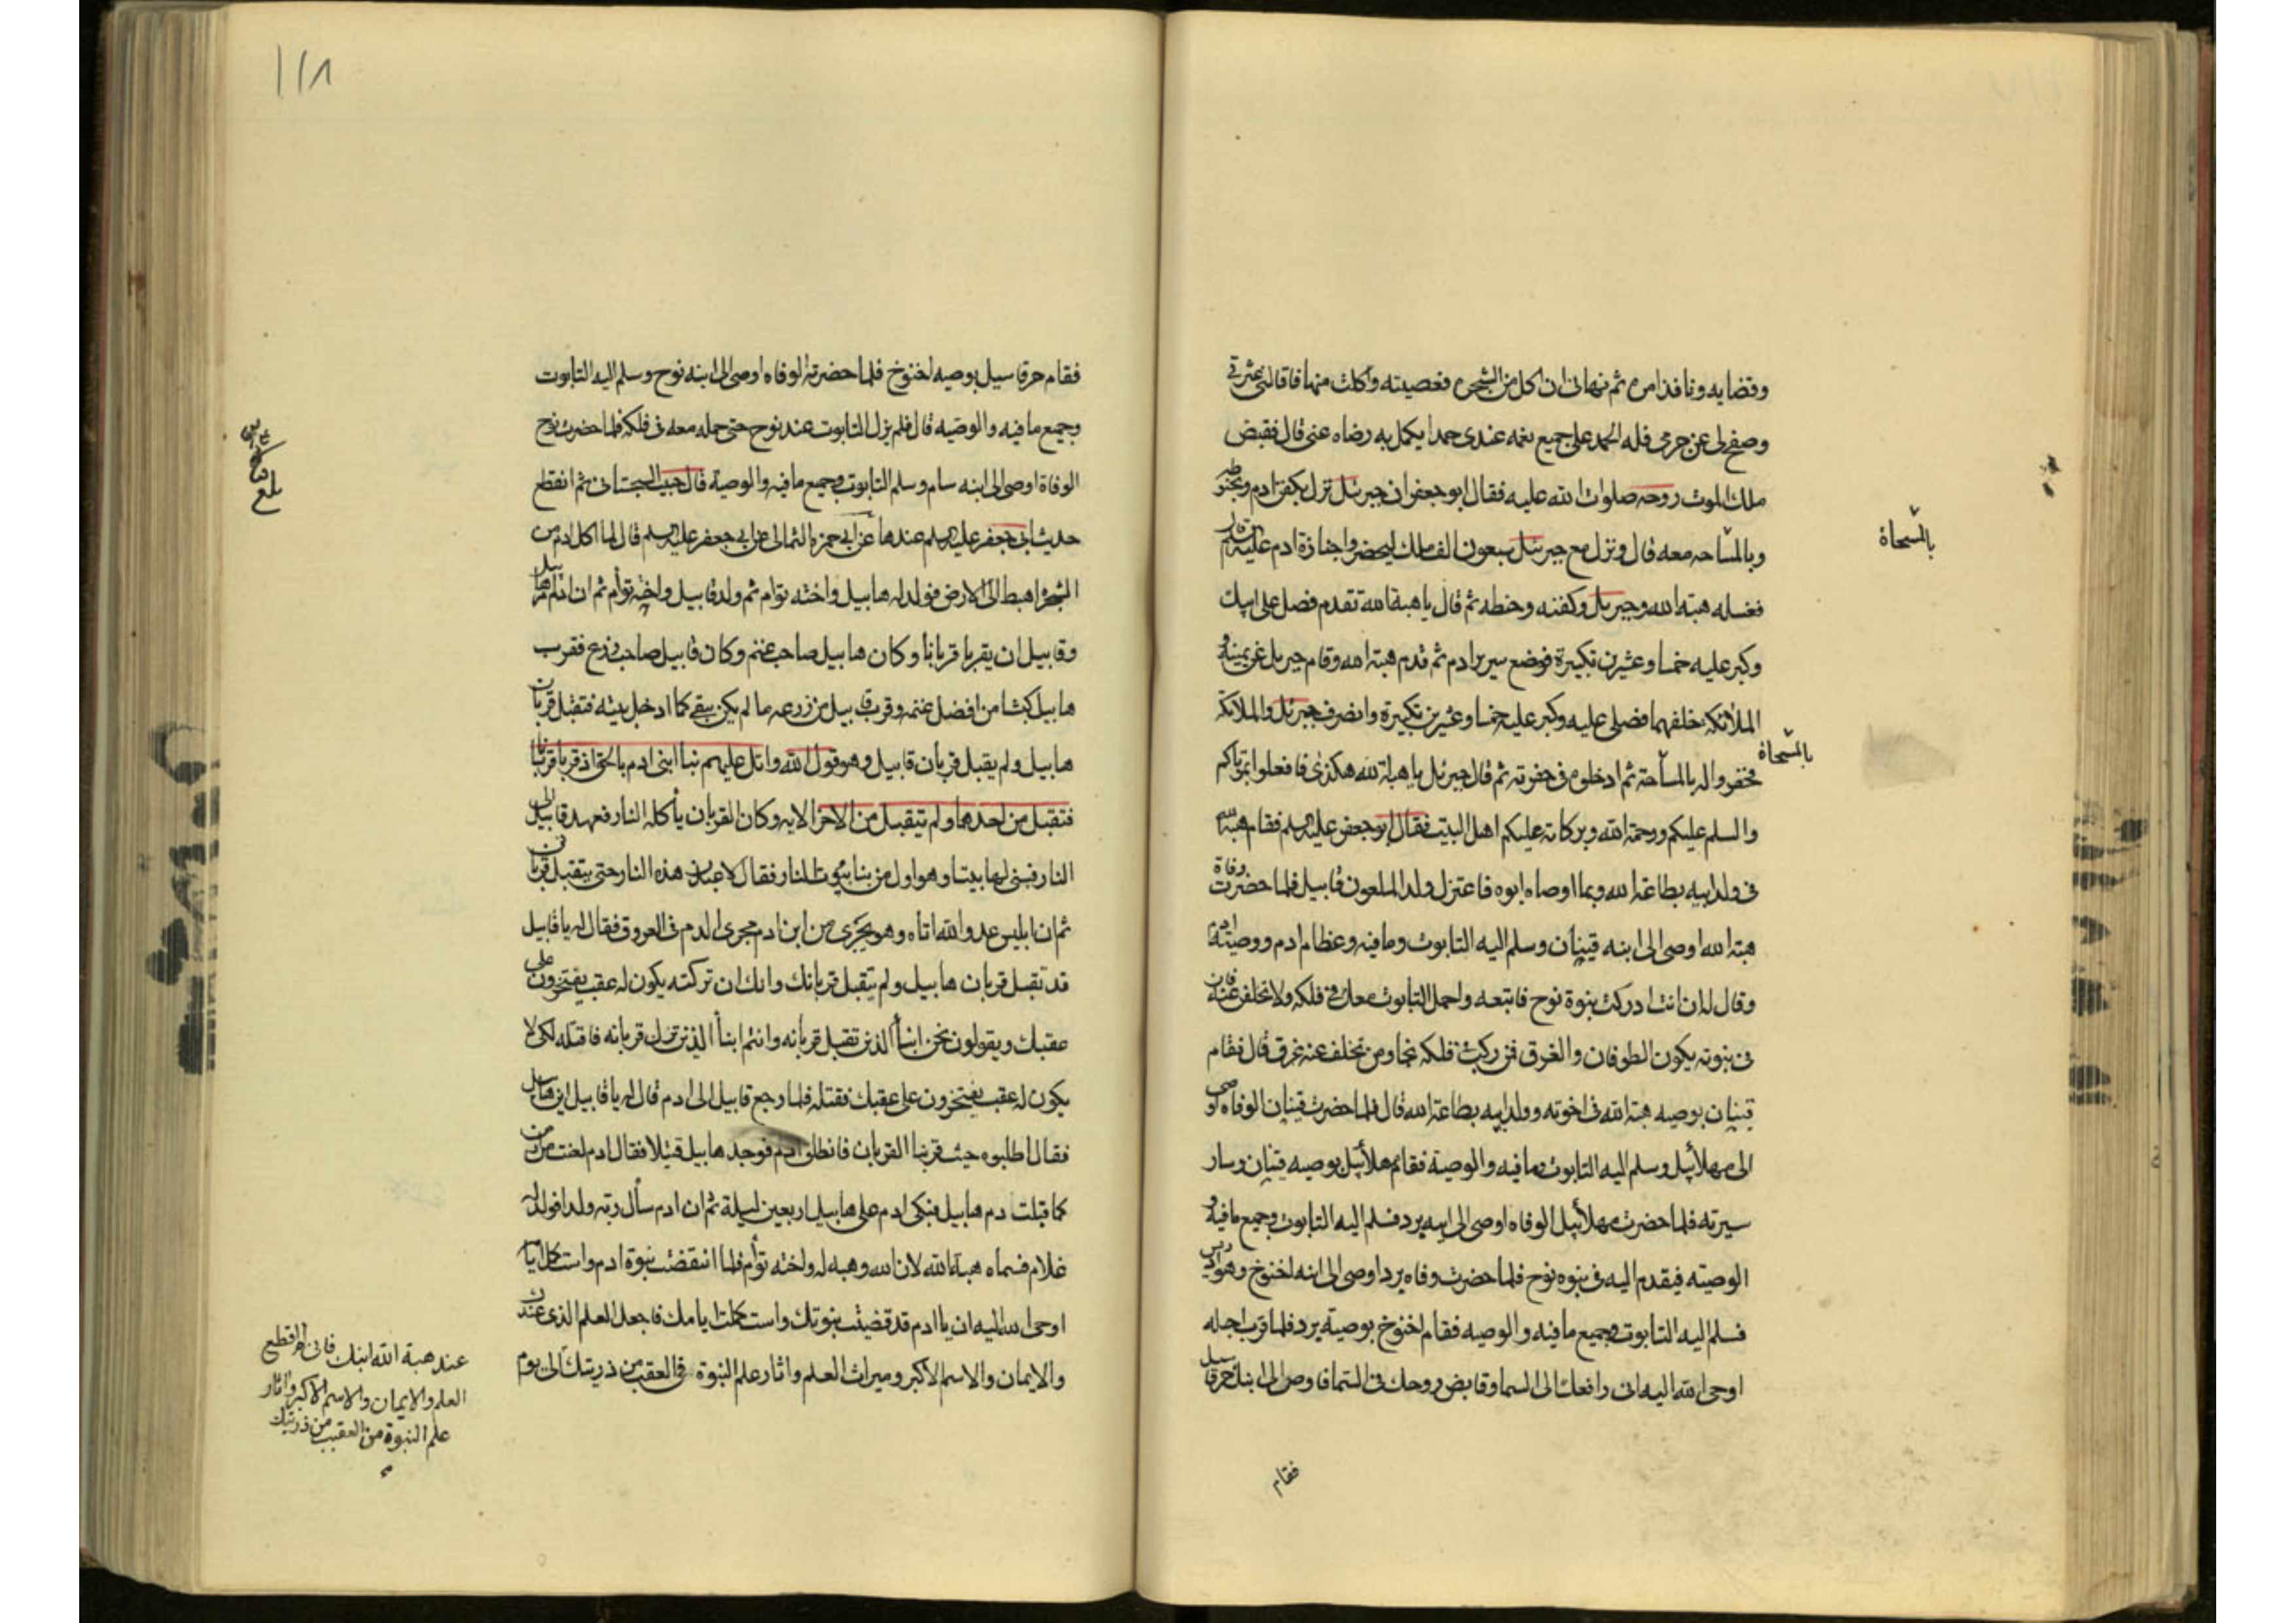 وقضايه ونافذ امره ثم نهانى ان اكل من الشجره فعصيته واكلت منها فاقالنى عثرتى
وصفح لى عن جرمى فله الحمد على جميع نعمه عندى حمدا يكمل به رضاه عنى قال فقبض
ملك الموت روحه صلوات الله عليه فقال ابو جعفر ان جبرئيل نزل بكفن ادم وبحنوطه
وبالمسّاحه معه قال ونزل مع جبرئيل سبعون الف ملك ليحضروا جنازة ادم عليه السلم
بالمسّحاة
فغسله هبة الله وجبرئيل وكفنه وحنطه ثم قال يا هبة الله تقدم فصل على ابيك
وكبر عليه خمسا وعشرين تكبيرة فوضع سرير ادم ثم قدم هبة الله وقام جبريل عن يمينه و
الملائكة خلفهما فصلى عليه وكبر عليه خمسا وعشرين تكبيرة وانصرف جبرئيل والملائكة
فحفروا له بالمسّاحة ثم ادخلوه فى حفرته ثم قال جبرئيل يا هبة الله هكذى فافعلوا بموتاكم
بالمسّحاة
والسلم عليكم ورحمة الله وبركاته عليكم اهل البيت فقال ابو جعفر عليه السلم فقام هبة الله
فى ولد ابيه بطاعة الله وبما اوصاه ابوه فاعتزل ولد الملعون قابيل فلما حضرت وفاة
هبة الله اوصى الى ابنه قينان وسلم اليه التابوت وما فيه وعظام ادم ووصية ادم
وقال له ان انت ادركت بنوة نوح فاتبعه واحمل التابوت معك فى فلكه ولا تخلفن عنه فان
فى بنوته يكون الطوفان والغرق فمن ركب فلكه نجا ومن تخلف عنه غرق قال فقام
قينان بوصيه هبة الله فى اخوته وولد ابيه بطاعة الله قال فلما حضرت قينان الوفاه اوصى
الى مهلائيل وسلم اليه التابوت وما فيه والوصية فقام مهلائيل بوصيه قينان وسار
سيرته فلما حضرت مهلائيل الوفاه اوصى الى ابنه يرد فسلم اليه التابوت وجميع ما فيه و
الوصيته فيقدم اليه فى بنوه نوح فلما حضرت وفاه يرد اوصى الى ابنه اخنوخ وهو ادريس
فسلم اليه التابوت وجميع ما فيه والوصيه فقام اخنوخ بوصية يرد فلما قرب اجله
اوحى الله اليه انى رافعك الى السما وقابض روحك فى السّما فاوص الى ابنك حرقاسيل
فقام
١١٨
فقام حرقاسيل بوصيه اخنوخ فلما حضرته الوفاه اوصى الى ابنه نوح وسلم اليه التابوت
وجميع ما فيه والوصيّه قال فلم يزل التابوت عند نوح حتى حمله معه فى فلكه فلما حضرت نوح
الوفاة اوصى الى ابنه سام وسلم التابوت وجميع ما فيه والوصية قال حبيب السجستانى ثم انقطع
بلغ
حديث ابى جعفر عليه السلم عندها عن ابى حمزه الثمالى عن ابى جعفر عليه السلم قال لما اكل ادم من
الشجرة اهبط الى الارض فولد له هابيل واخته توام ثم ولد قابيل واخته توأم ثم ان ادم امر هابيل
وقابيل ان يقربا قربانا وكان هابيل صاحب غنم وكان قابيل صاحب زرع فقرب
هابيل كبشا من افضل غنمه وقرب قابيل من زرعه ما لم يكن ينقى كما ادخل بيته فتقبل قربان
هابيل ولم يقبل قربان قابيل وهو قول الله واتل عليهم نبأ ابنى ادم بالحق اذ قربا قربانا
فتقبل من احدهما ولم يتقبل من الاخر الايه وكان القربان يأكله النار فعهد قابيل الى
النار فبنى لها بيتا وهو اول من بنا بيوت للنار فقال لاعبدن هذه النار حتى يتقبل قربانى
ثم ان ابليس عدو الله اتاه وهو يجرى من ابن ادم مجرى الدم فى العروق فقال له يا قابيل
قد تقبل قربان هابيل ولم يتقبل قربانك وانك ان تركته يكون له عقب يفتخرون على
عقبك ويقولون نحن ابنأ الذين تقبل قربانه وانتم ابنأ الذين ترك قربانه فاقتله لكى لا
يكون له عقب يفتخرون على عقبك فقتله فلما رجع قابيل الى ادم قال له يا قابيل اين هابيل
فقال اطلبوه حيث قربنا القربان فانطلق ادم فوجد هابيل قتيلا فقال ادم لعنت من ارض
كما قبلت دم هابيل فبكى ادم على هابيل اربعين ليلة ثم ان ادم سأل ربه ولدا فولد له
غلام فسماه هبة الله لان الله وهبه له ولخته توأم فلما انقضت بنوة ادم واستكمل ايامه
اوحى الله اليه ان يا ادم قد قضيت بنوتك واستكملت ايامك فاجعل العلم الذى عندك
والايمان والاسم الاكبر وميراث العلم واثار علم النبوة فى العقب من ذريتك الى يوم
عند هبة الله ابنك فانى لم اقطع
العلم والايمان والاسم الاكبر واثار
علم النبوة من العقب من ذريتك